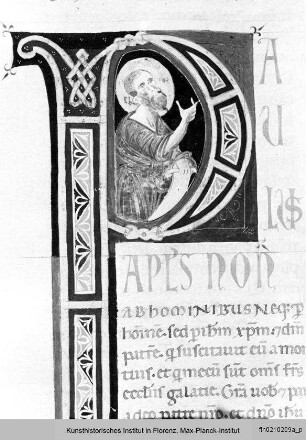 PAULUS
APLS NON
AB HOMINIBUS Neq; p
homine. sed p ihm xpm. 7 dm
patre. q suscitavit eu a mor
tuis. et qi mecu sut oms frs
ecclis galatie. Gra vob 7 p
a deo patre nro. et dno ihu
Kunsthistorisches Institut in Florenz, Max-Planck-Institut
fln0210209a_p